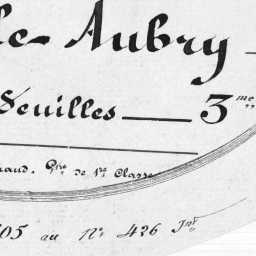 le Aubry
Feuilles — 3me
aud. Gtre de 1re Classe
505 au No 426 Int